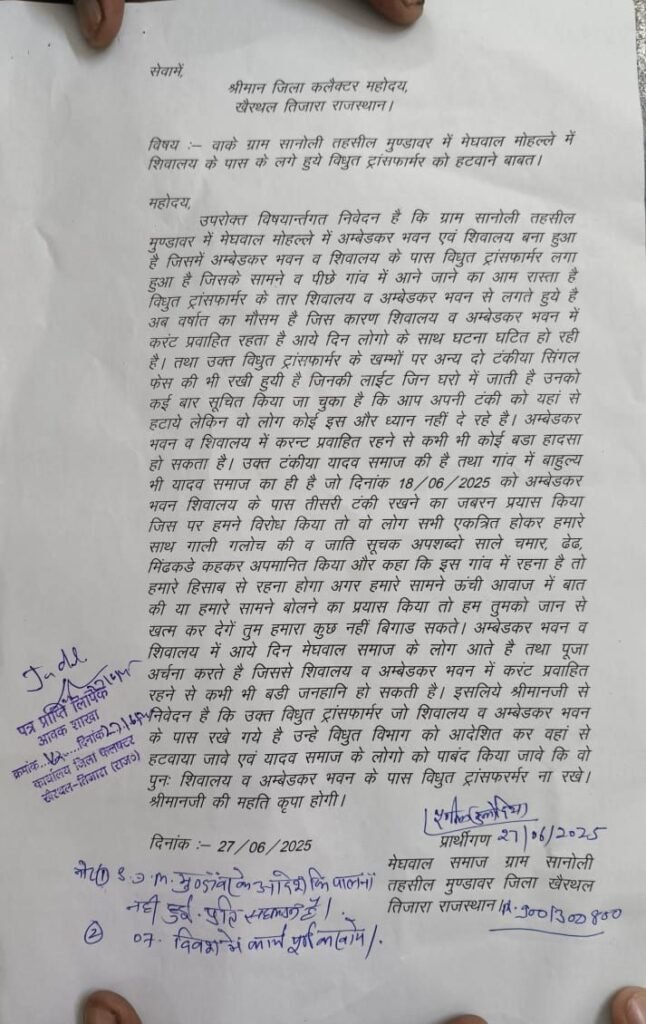 सेवामें,
श्रीमान जिला कलैक्टर महोदय,
खैरथल तिजारा राजस्थान।
विषय :– वाके ग्राम सानोली तहसील मुण्डावर में मेघवाल मोहल्ले में
शिवालय के पास के लगे हुये विधुत ट्रांसफार्मर को हटवाने बाबत।
महोदय,
उपरोक्त विषयार्न्तगत निवेदन है कि ग्राम सानोली तहसील
मुण्डावर में मेघवाल मोहल्ले में अम्बेडकर भवन एवं शिवालय बना हुआ
है जिसमें अम्बेडकर भवन व शिवालय के पास विधुत ट्रांसफार्मर लगा
हुआ है जिसके सामने व पीछे गांव में आने जाने का आम रास्ता है
विधुत ट्रांसफार्मर के तार शिवालय व अम्बेडकर भवन से लगते हुये है
अब वर्षात का मौसम है जिस कारण शिवालय व अम्बेडकर भवन में
करंट प्रवाहित रहता है आये दिन लोगो के साथ घटना घटित हो रही
है। तथा उक्त विधुत ट्रांसफार्मर के खम्भों पर अन्य दो टंकीया सिंगल
फेस की भी रखी हुयी है जिनकी लाईट जिन घरो में जाती है उनको
कई बार सूचित किया जा चुका है कि आप अपनी टंकी को यहां से
हटाये लेकिन वो लोग कोई इस और ध्यान नहीं दे रहे है। अम्बेडकर
भवन व शिवालय में करन्ट प्रवाहित रहने से कभी भी कोई बडा हादसा
हो सकता है। उक्त टंकीया यादव समाज की है तथा गांव में बाहुल्य
भी यादव समाज का ही है जो दिनांक 18/06/2025 को अम्बेडकर
भवन शिवालय के पास तीसरी टंकी रखने का जबरन प्रयास किया
जिस पर हमने विरोध किया तो वो लोग सभी एकत्रित होकर हमारे
साथ गाली गलोच की व जाति सूचक अपशब्दो साले चमार, ढेढ,
मिंढकडे कहकर अपमानित किया और कहा कि इस गांव में रहना है तो
हमारे हिसाब से रहना होगा अगर हमारे सामने ऊंची आवाज में बात
की या हमारे सामने बोलने का प्रयास किया तो हम तुमको जान से
खत्म कर देगें तुम हमारा कुछ नहीं बिगाड सकते। अम्बेडकर भवन व
शिवालय में आये दिन मेघवाल समाज के लोग आते है तथा पूजा
अर्चना करते है जिससे शिवालय व अम्बेडकर भवन में करंट प्रवाहित
रहने से कभी भी बडी जनहानि हो सकती है। इसलिये श्रीमानजी से
निवेदन है कि उक्त विधुत ट्रांसफार्मर जो शिवालय व अम्बेडकर भवन
के पास रखे गये है उन्हे विधुत विभाग को आदेशित कर वहां से
हटवाया जावे एवं यादव समाज के लोगो को पाबंद किया जावे कि वो
पुनः शिवालय व अम्बेडकर भवन के पास विधुत ट्रांसफरर्मर ना रखे।
श्रीमानजी की महति कृपा होगी।
पत्र प्राप्ति लिपिक
आवक शाखा
क्रमांक........दिनांक
कार्यालय जिला कलक्टर
खैरथल-तिजारा (राज0)
दिनांक :– 27/06/2025
प्रार्थीगण 27/06/2025
मेघवाल समाज ग्राम सानोली
तहसील मुण्डावर जिला खैरथल
तिजारा राजस्थान
नोट(1) S.D.M. मुण्डावर के आदेश कि पालना
नहीं हुई. प्रति संलग्न है।
(2) 07. दिवस में कार्य पूर्ण करावे।